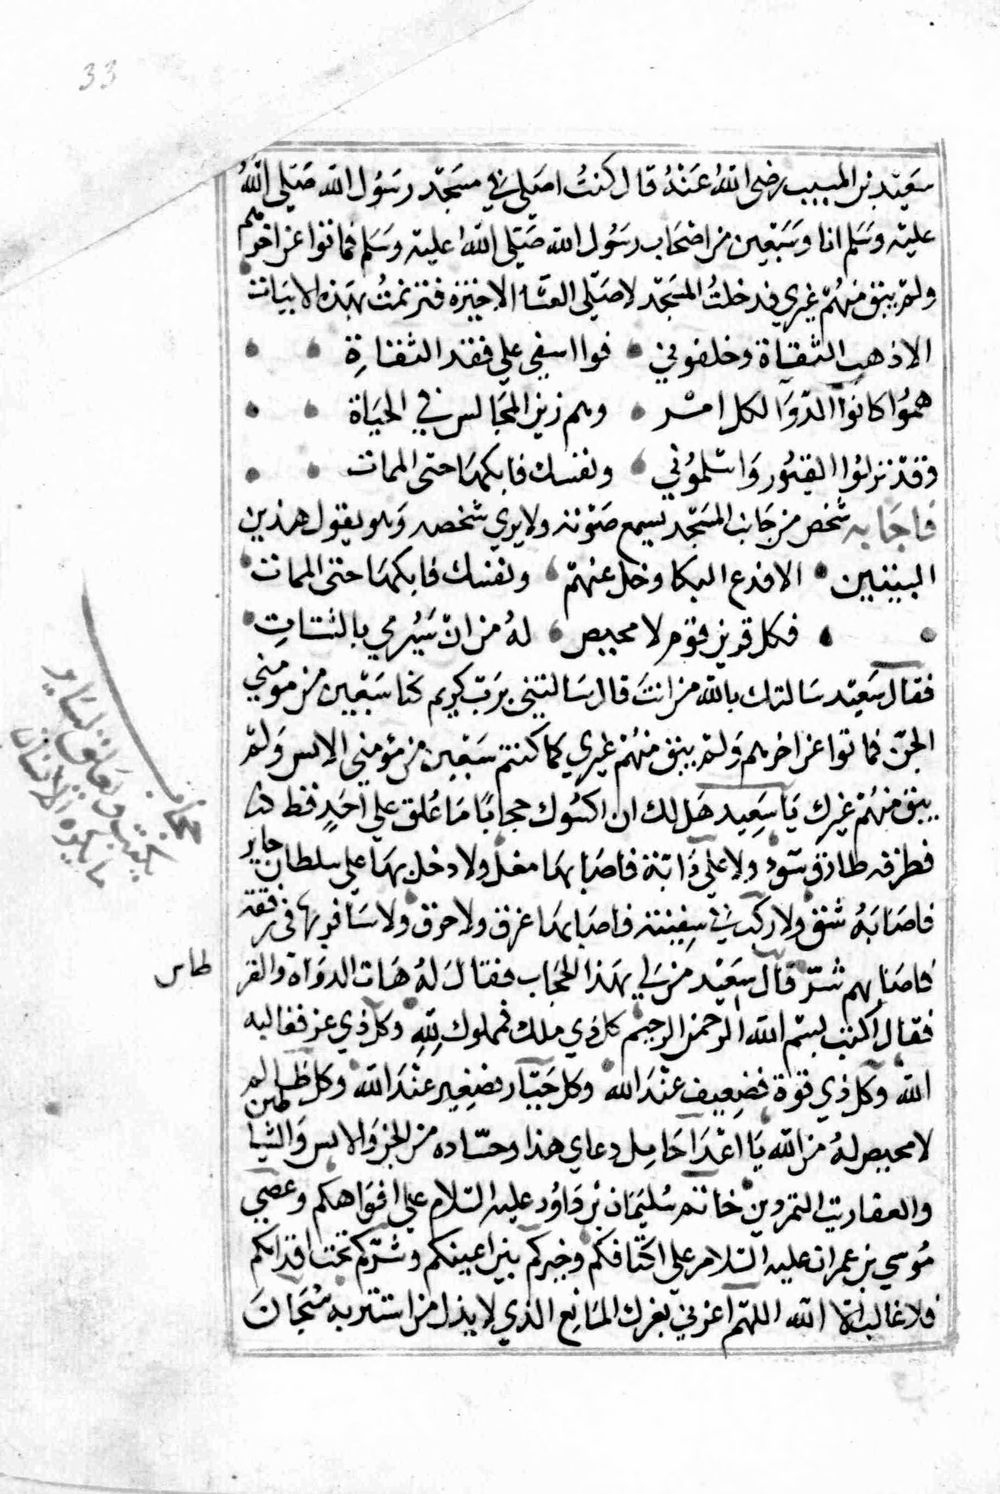 33
سعيد بن المسيب رضي الله عنه قال كنت اصلي في مسجد رسول الله صلى الله
عليه وسلم انا وسبعين من اصحاب رسول الله صلى الله عليه وسلم فماتوا عن اخرهم
ولم يبق منهم غيري فدخلت المسجد لاصلي العشا الاخيرة فترنمت بهذه الابيات
الا ذهب الثقاة وخلفوني فوا اسفي علي فقد الثقاة
همواكانوا الدوا لكل امر وهم زين المجالس في الحياة
وقد نزلوا القبور واسلموني ونفسك فابكها حتى الممات
فاجابه شخص من جانب المسجد يسمع صوته ولا يري شخصه وهو يقول هذين
البيتين الا فدع البكا وخل عنهم ونفسك فابكها حتى الممات
فكل قرين قوم لا محيص له من ان سيرمي بالشتات
فقال سعيد سالتك بالله من انت قال سالتني برب كريم كنا سبعين من مومني
الجن فماتوا عن اخرهم ولم يبق منهم غيري كما كنتم سبعين من مؤمني الانس ولم
يبق منهم غيرك يا سعيد هل لك ان اكسوك حجابا ما علق علي احد قط
فطرقه طارق سوء ولا علي دابة فاصابها مغل ولا دخل بها علي سلطان جاير
فاصابه شنق ولا ركب في سفينة فاصابها غرق ولا حرق ولا سافر بها في رفقة
فاصابهم شر قال سعيد من لي بهذا الحجاب فقال له هات الدواة والقر
طاس
فقال اكتب بسم الله الرحمن الرحيم كل ذي ملك فمملوك لله وكل ذي عز فغالبه
الله وكل ذي قوة فضعيف عند الله وكل جبار فصغير عند الله وكل ظالم
لا محيص له من الله يا اعدا حامل دعاي هذا وحساده من الجن والانس والشياطين
والعفاريت المتمردين خاتم سليمان بن داؤد عليه السلام علي افواهكم وعصي
موسي بن عمران عليه السلام علي اكتافكم وخيركم بين اعينكم وشركم تحت اقدامكم
فلا غالب الا الله اللهم اعزني بعزك المانع الذي لا يذل من استتر به سبحان
حجاب
يكتب ويعلق لساير
ما يكره الانسان